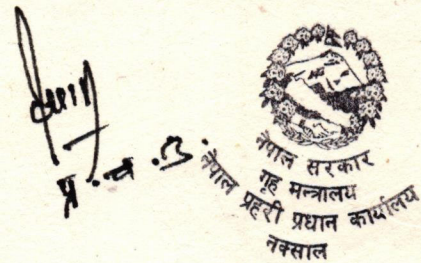 प्र.व.उ.
नेपाल सरकार
गृह मन्त्रालय
नेपाल प्रहरी प्रधान कार्यालय
नक्साल